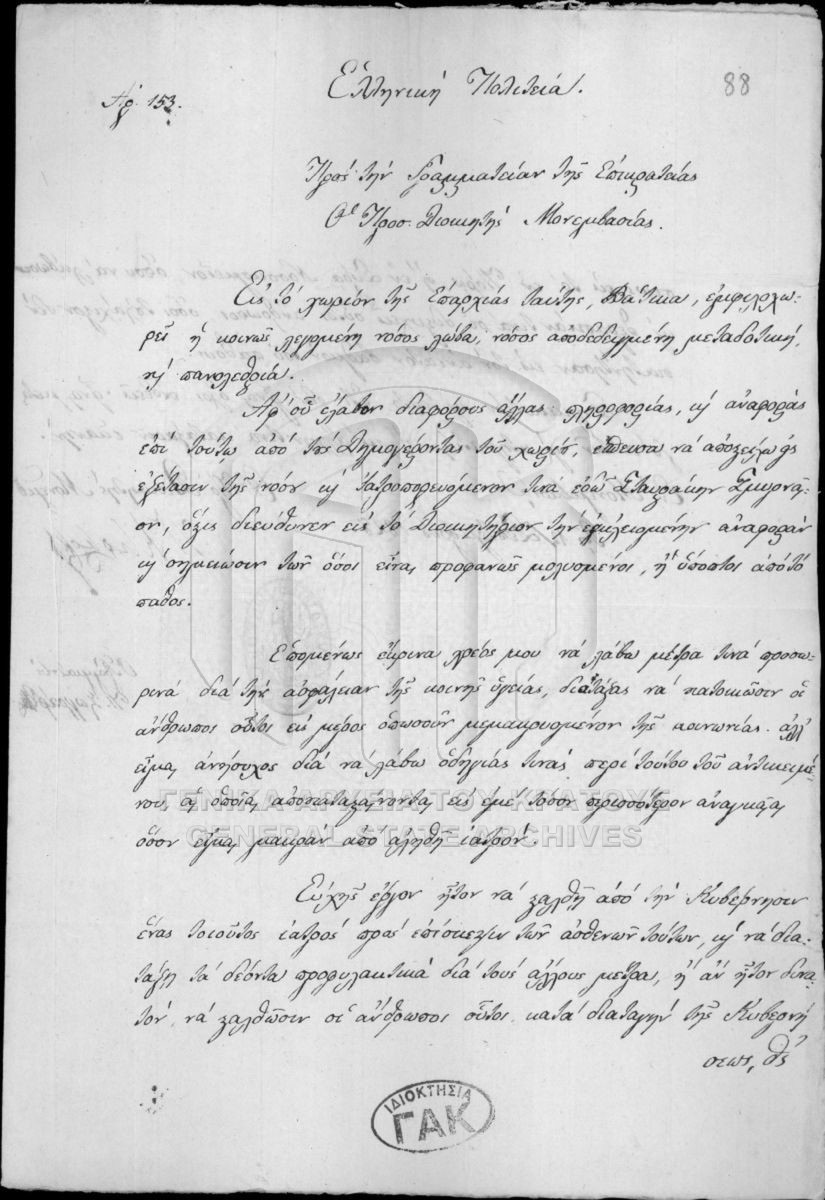 88
Ἑλληνική Πολιτεία.
Ἀρ. 153.
Πρός τήν Γραμματείαν τῆς Ἐπικρατείας
Ὁ Προσ. Διοικητής Μονεμβασίας.
Εἰς τό χωρίον τῆς Ἐπαρχίας ταύτης, Βάτικα, ἐμφιλοχω-
ρεῖ ἡ κοινῶς λεγομένη νόσος λώβα, νόσος ἀποδεδειγμένη μεταδοτική,
κ͵ πανωλεθρία.
Ἀφ' οὗ ἔλαβον διαφόρους ἄλλας πληροφορίας, κ͵ ἀναφοράς
ἐπί τούτῳ ἀπό τούς Δημογέροντας τοῦ χωρίου, ἔπευσα νά ἀποστείλω εἰς
ἐξέτασιν τῆς νόσου κ͵ ἰατροπορευόμενον τινά ἐδῶ Σταυράκην
ον, ὅστις διεύθυνεν εἰς τό Διοικητήριον τήν ἐγκλεισμένην ἀναφοράν
κ͵ σημείωσιν τῶν ὅσοι εἶναι προφανῶς μολυσμένοι, ἤ ὕποπτοι ἀπό τό
πάθος.
Ἑπομένως ἔκρινα χρέος μου νά λάβω μέτρα τινά προσω-
ρινά διά τήν ἀσφάλειαν τῆς κοινῆς ὑγείας, διατάξας νά κατοικῶσιν οἱ
ἄνθρωποι οὗτοι εἰς μέρος ὁπωσοῦν μεμακρυσμένον τῆς κοινωνίας. ἀλλ'
εἶμαι ἀνήσυχος διά νά λάβω ὁδηγίας τινάς περί τούτου τοῦ ἀντικειμέ-
νου, αἱ ὁποῖαι ἀποκατασταίνονται εἰς ἐμέ τόσον περισσότερον ἀναγκαῖαι
ὅσον εἶμαι μακράν ἀπό ἀληθῆ ἰατρόν.
Εὐχῆς ἔργον ἦτον νά σταλθῇ ἀπό τήν Κυβέρνησιν
ἕνας τοιοῦτος ἰατρός πρός ἐπίσκεψιν τῶν ἀσθενῶν τούτων, κ͵ νά δια-
τάξῃ τά δέοντα προφυλακτικά διά τούς ἄλλους μέτρα, ἤ ἄν ἦτον δυνα-
τόν, νά σταλθῶσιν οἱ ἄνθρωποι οὗτοι κατά διαταγήν τῆς Κυβερνή
σεως,
ΓΕΝΙΚΑ ΑΡΧΕΙΑ ΤΟΥ ΚΡΑΤΟΥΣ
GENERAL STATE ARCHIVES
ΙΔΙΟΚΤΗΣΙΑ
ΓΑΚ